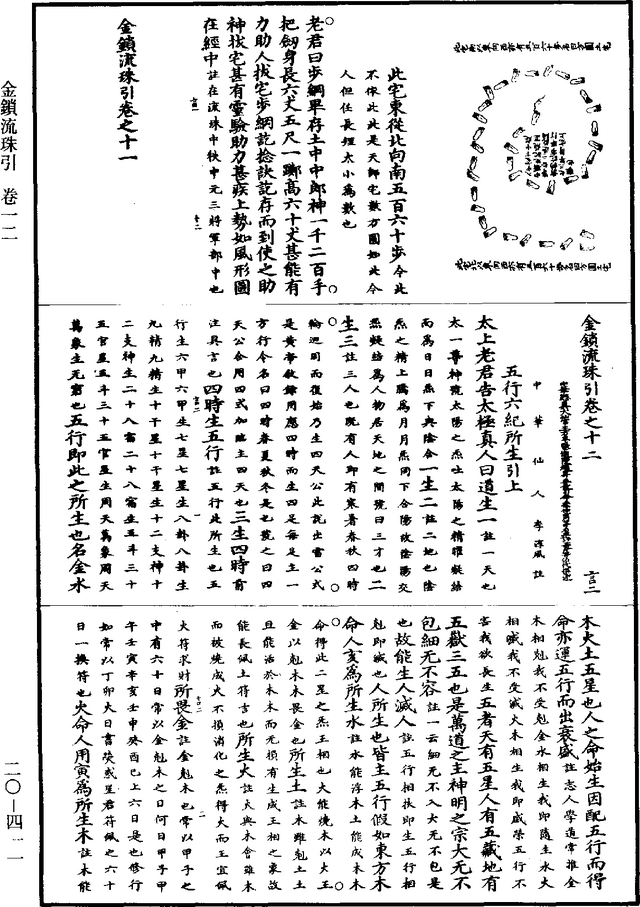 金鎖流珠引 卷一二
二〇—四一一
此宅東從北向南五百六十步今此
不依此此是天師宅數方圓如此今
人但任長短大小為數也
老君曰步綱畢存土中中郎神一千二百手
把劒身長六丈五尺一躑高六十丈甚能有
力助人拔宅步綱訖捻訣訖存而到使之助
神拔宅甚有靈驗助力甚疾上勢如風形圖
在經中註在流珠中秋中元三將軍部中也
金鎖流珠引卷之十一
金鎖流珠引卷之十二
言二
中華仙人李淳風註
五行六紀所生引上
太上老君告太極真人曰道生一註一天也
太一尊神號太陽之炁吐太陽之精曜凝結
而為日日炁下與陰合一生二註二地也陰
炁之精上騰為月月炁同下合陽故陰陽交
炁凝結為人物居天地之間號曰三才也二
生三註三人也既有人即有寒暑春秋四時
輪迴周而復始乃生四天公此說出雷公式
是黃帝飲鍊用應四時而生四是每足主一
方行令名曰四時春夏秋冬是也號之曰四
天公合用四式加臨主四天也三生四時音
註具言也四時生五行註五行此所生也五
行生六甲六甲生七星七星生八卦八卦生
九精九精生十干星十干星生十二支神十
二支神生二十八宿二十八宿生五斗三十
五官星五斗三十五官星生周天萬象周天
萬象生无窮也五行即此之所生也名金水
木火土五星也人之命始生因配五行而得
命亦運五行而出衰盛註志人學道常推金
木相剋我不受剋金水相生我即隨生水火
相賊我不受滅火木相生我即盛榮五行不
害我欲長生五者天有五星人有五藏地有
五嶽三五也是萬道之主神明之宗大无不
包細无不容註一云細无不入大无不包是
也故能生人滅人註五行相扶即生五行相
剋即滅也人所生也皆主五行假如東方木
命人亥為所生水註水能浮木土能成木木
命得此二星之炁王相也大能燒木以火王
金以剋木木畏金也所生土註木雖剋土土
且能活於木木而无損有生成王相之象故
能長佩土符言也所生火註火與木會雖木
而被燒成火不損消化之炁得火而王宜佩
火符求財所畏金註金剋木也常以甲子之
中有六十日常以金剋木之日何日甲子甲
午壬寅辛亥壬申癸酉已上六日是也修行
如常以丁卯火日書熒惑星君符佩之六十
日一換符也火命人用寅為所生木註木能